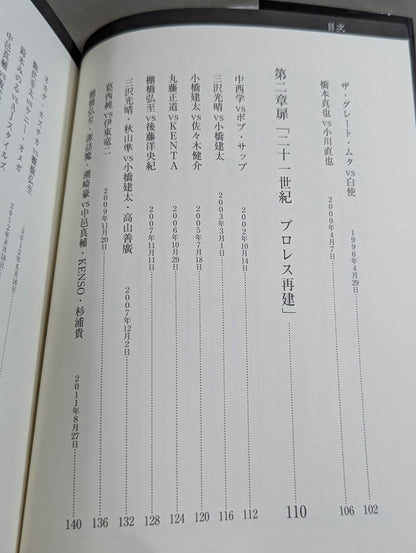 目次
ザ・グレート・ムタvs白使 1996年4月29日 102
橋本真也vs小川直也 2000年4月7日 106
第二章扉「二十一世紀 プロレス再建」 110
中西学vsボブ・サップ 2002年10月14日 112
三沢光晴vs小橋建太 2003年3月1日 116
小橋建太vs佐々木健介 2005年7月18日 120
丸藤正道vsKENTA 2006年10月29日 124
棚橋弘至vs後藤洋央紀 2007年11月11日 128
三沢光晴・秋山準vs小橋建太・高山善廣 2007年12月2日 132
葛西純vs伊東竜二 2009年11月20日 136
棚橋弘至・諏訪魔・潮崎豪vs中邑真輔・KENSO・杉浦貴 2011年8月27日 140
オカダ・カズチカvs棚橋弘至 2012年6月16日
飯伏幸太vsケニー・オメガ 2012年8月18日